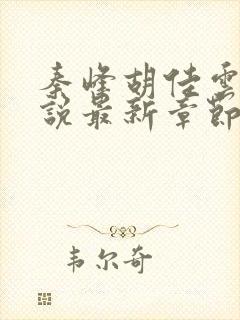 秦峰胡佳雲
說最新章節
韦尔奇